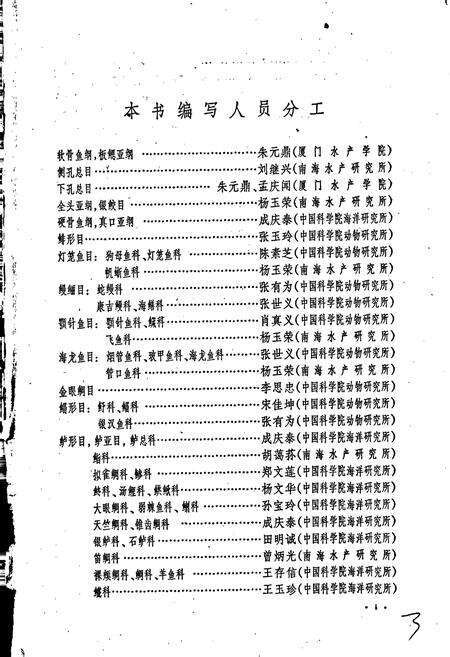 本书编写人员分工
软骨鱼纲,板鳃亚纲……………………朱元鼎(厦门水产学院)
侧孔总目……………………刘继兴(南海水产研究所)
下孔总目……………………朱元鼎、孟庆闻(厦门水产学院)
全头亚纲,银鲛目……………………杨玉荣(南海水产研究所)
硬骨鱼纲,真口亚纲……………………成庆泰(中国科学院海洋研究所)
鲱形目……………………张玉玲(中国科学院动物研究所)
灯笼鱼目:狗母鱼科、灯笼鱼科……………………陈素芝(中国科学院动物研究所)
帆蜥鱼科……………………杨玉荣(南海水产研究所)
鳗鲡目:蛇鳗科……………………张有为(中国科学院动物研究所)
康吉鳗科、海鳝科……………………张世义(中国科学院动物研究所)
颚针鱼目:颚针鱼科、鱵科……………………肖真义(中国科学院动物研究所)
飞鱼科……………………杨玉荣(南海水产研究所)
海龙鱼目:烟管鱼科、玻甲鱼科、海龙鱼科……………………张世义(中国科学院动物研究所)
管口鱼科……………………杨玉荣(南海水产研究所)
金眼鲷目……………………李思忠(中国科学院动物研究所)
鲻形目:魣科、鲻科……………………宋佳坤(中国科学院动物研究所)
银汉鱼科……………………张有为(中国科学院动物研究所)
鲈形目,鲈亚目,鲈总科……………………成庆泰(中国科学院海洋研究所)
鮨科……………………胡蔼荪(南海水产研究所)
拟雀鲷科、鰺科……………………郑文莲(中国科学院海洋研究所)
科、汤鲤科、科……………………杨文华(中国科学院海洋研究所)
大眼鲷科、弱棘鱼科、科……………………孙宝玲(中国科学院海洋研究所)
天竺鲷科、锥齿鲷科……………………成庆泰(中国科学院海洋研究所)
银鲈科、石鲈科……………………田明诚(中国科学院海洋研究所)
笛鲷科……………………曾炳光(南海水产研究所)
裸颊鲷科、鲷科、羊鱼科……………………王存信(中国科学院海洋研究所)
科……………………王玉珍(中国科学院海洋研究所)
3